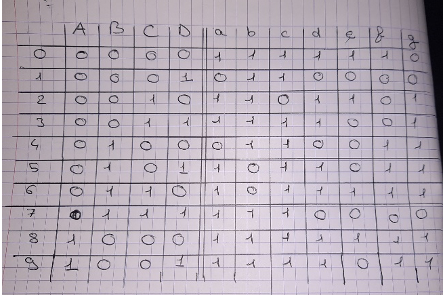 A B C D a b c d e f g
0 0 0 0 0 1 1 1 1 1 1 0
1 0 0 0 1 0 1 1 0 0 0 0
2 0 0 1 0 1 1 0 1 1 0 1
3 0 0 1 1 1 1 1 1 0 0 1
4 0 1 0 0 0 1 1 0 0 1 1
5 0 1 0 1 1 0 1 1 0 1 1
6 0 1 1 0 1 0 1 1 1 1 1
7 0 1 1 1 1 1 1 0 0 0 0
8 1 0 0 0 1 1 1 1 1 1 1
9 1 0 0 1 1 1 1 1 0 1 1